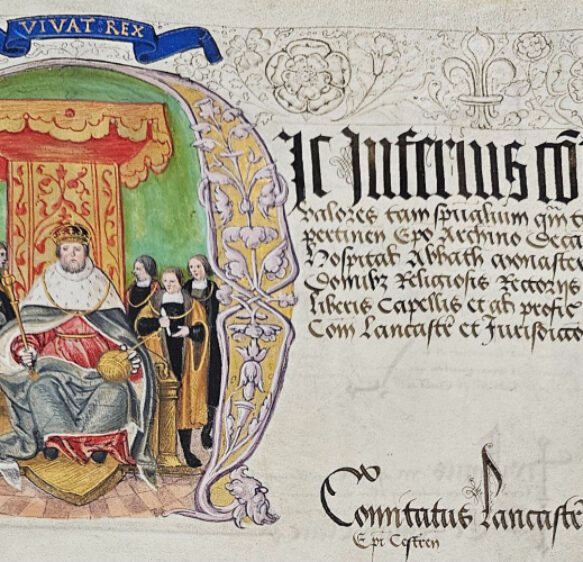 VIVAT REX
Hic Inferius co
valores tam spũalium qm t
pertinen Epo Archino Deca
Hospital Abbath monaster
Domibȝ Religiosis Rectorijs
liberis Capellis et ab profic
Com Lancastr et Jurisdicco
Comitatus Lancastr
Epi Cestren